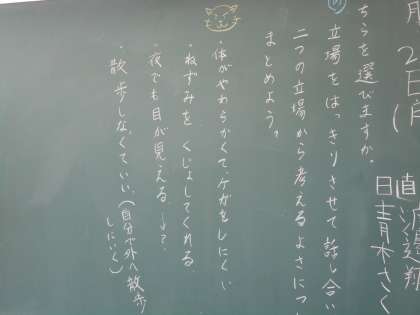 月2日(月
直 渡邉翔
日 青木さく
ちらを選びますか。
立場をはっきりさせて話し合い
二つの立場から考えるよさにつ
まとめよう。
・体がやわらかくて、ケガをしにくい
・ねずみを くじょしてくれる
・夜でも目が見える
・散歩しなくていい。(自分で外へ散歩
しにいく)